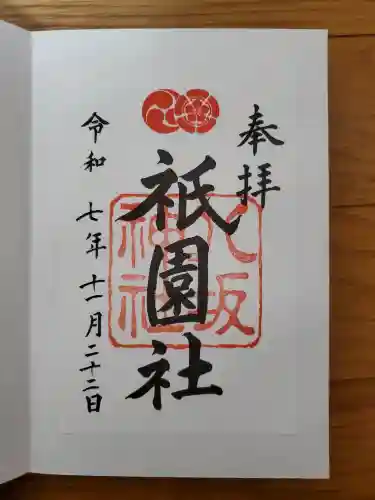 奉拝
八坂神社
祇園社
令和七年十一月二十二日